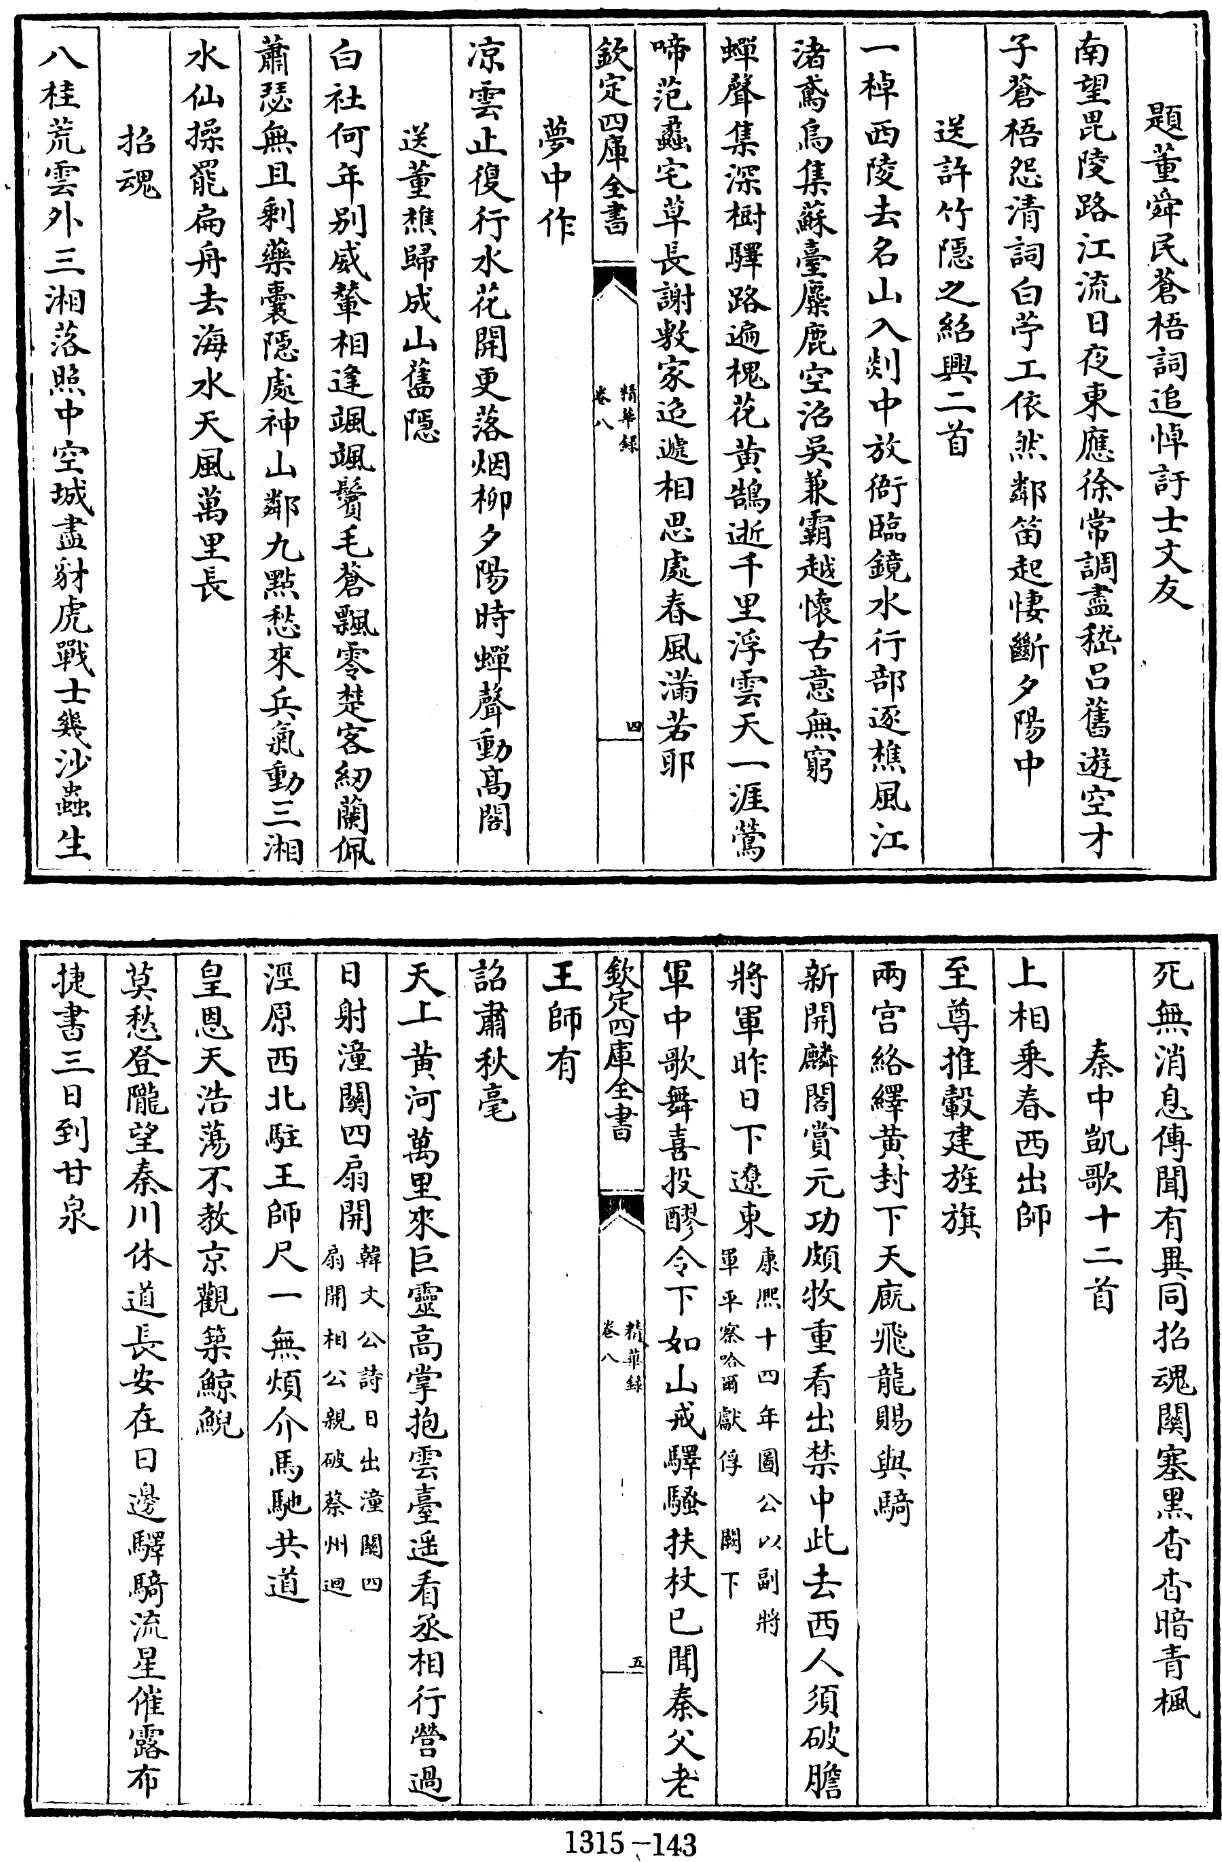 題董舜民蒼梧詞追悼訏士文友
南望毘陵路江流日夜東應徐常調盡嵇呂舊遊空才
子蒼梧怨清詞白苧工依然鄰笛起悽斷夕陽中
送許竹隱之紹興二首
一棹西陵去名山入剡中放衙臨鏡水行部逐樵風江
渚鳶烏集蘇臺麋鹿空沼吳兼霸越懷古意無窮
蟬聲集深樹驛路遍槐花黃鵠逝千里浮雲天一涯鶯
啼范蠡宅草長謝敷家迢遞相思處春風滿若耶
欽定四庫全書
精華錄
卷八
四
夢中作
凉雲止復行水花開更落烟柳夕陽時蟬聲動高閣
送董樵歸成山舊隱
白社何年别威輦相逢颯颯鬢毛蒼飄零楚客紉蘭佩
蕭瑟無且剩藥囊隱處神山鄰九點愁來兵氣動三湘
水仙操罷扁舟去海水天風萬里長
招魂
八桂荒雲外三湘落照中空城盡豺虎戰士幾沙蟲生
死無消息傳聞有異同招魂關塞黑杳杳暗青楓
秦中凱歌十二首
上相乘春西出師
至尊推轂建旌旗
兩宮絡繹黃封下天廐飛龍賜與騎
新開麟閣賞元功頗牧重看出禁中此去西人須破膽
將軍昨日下遼東康熙十四年圖公以副將
軍平察哈爾獻俘 闕下
軍中歌舞喜投醪令下如山戒驛騷扶杖已聞秦父老
欽定四庫全書
精華錄
卷八
五
王師有
詔肅秋毫
天上黃河萬里來巨靈高掌抱雲臺遥看丞相行營過
日射潼關四扇開韓文公詩日出潼關四
扇開相公親破蔡州迴
涇原西北駐王師尺一無煩介馬馳共道
皇恩天浩蕩不教京觀築鯨鯢
莫愁登隴望秦川休道長安在日邊驛騎流星催露布
捷書三日到甘泉
1315-143